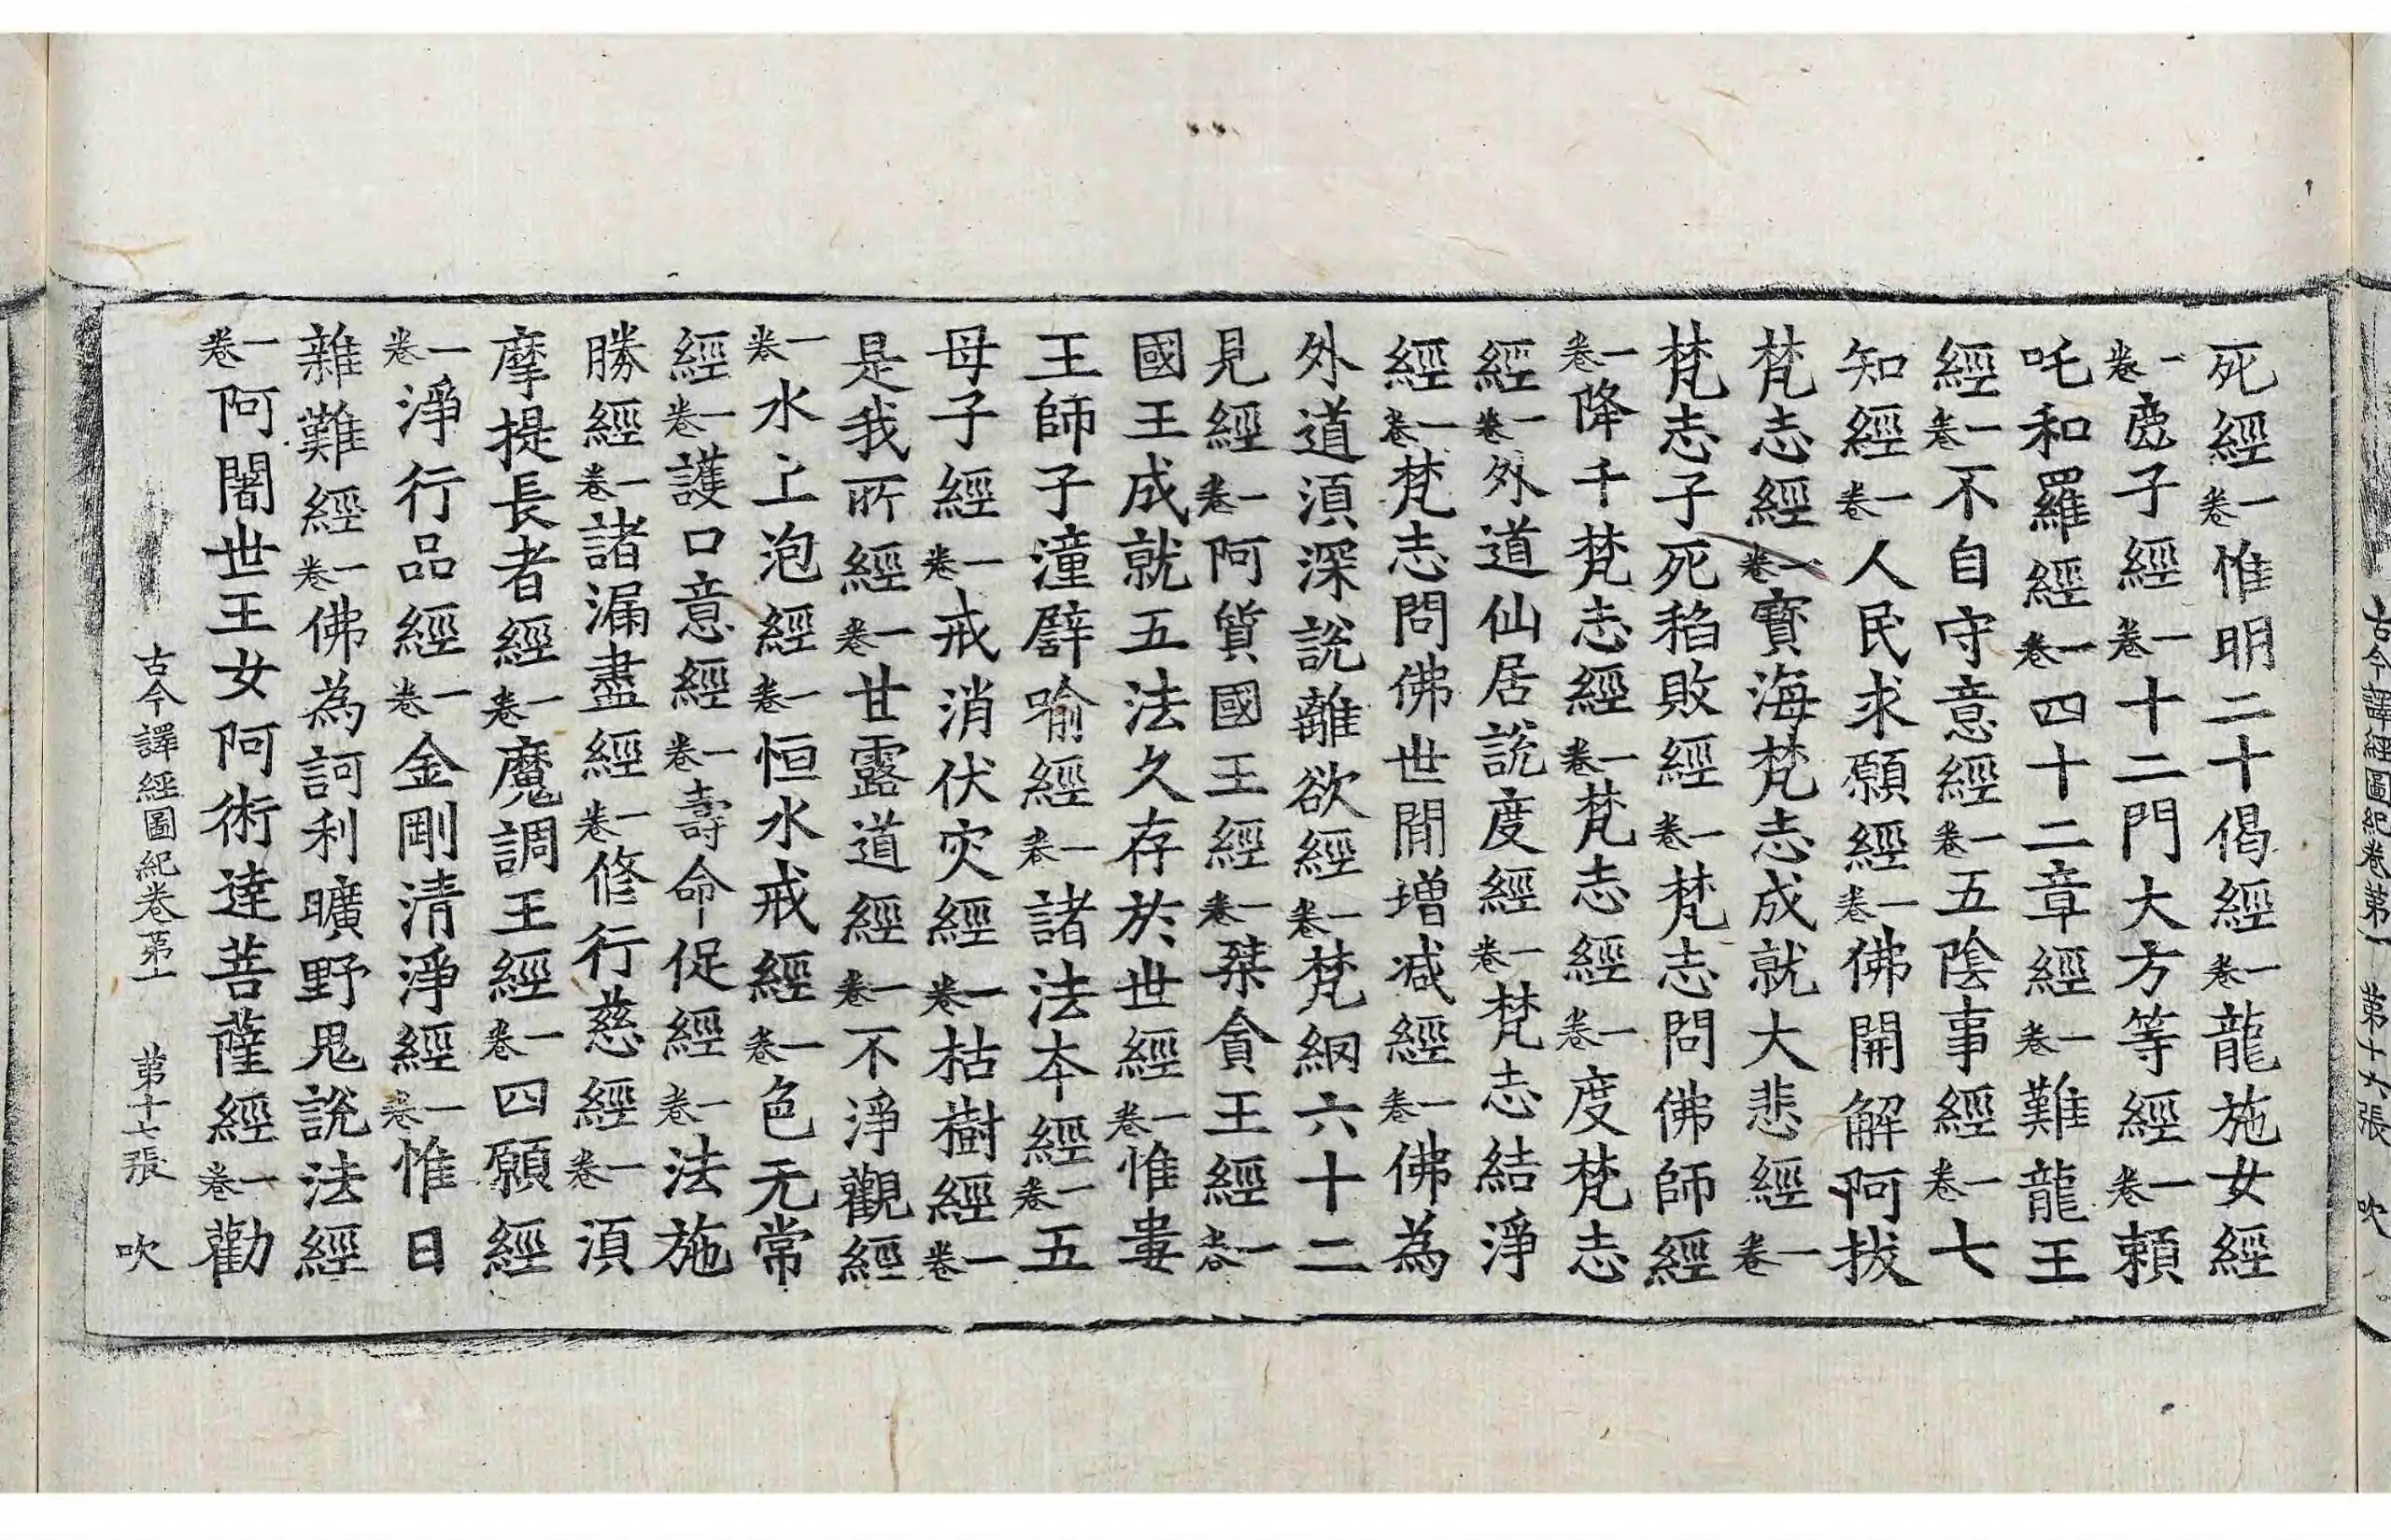 古今譯經圖紀卷第一 第十六張 吹
死經一卷惟明二十偈經一卷龍施女經
一卷鹿子經一卷十二門大方等經一卷賴
吒和羅經一卷四十二章經一卷難龍王
經一卷不自守意經一卷五陰事經一卷七
知經一卷人民求願經一卷佛開解阿拔
梵志經一卷寶海梵志成就大悲經一卷
梵志子死稻敗經一卷梵志問佛師經
一卷降千梵志經一卷梵志經一卷度梵志
經一卷外道仙居說度經一卷梵志結淨
經一卷梵志問佛世閒增減經一卷佛為
外道湏深說離欲經一卷梵網六十二
見經一卷阿質國王經一卷桀貪王經一卷
國王成就五法久存於世經一卷惟婁
王師子潼譬喻經一卷諸法本經一卷五
母子經一卷戒消伏灾經一卷枯樹經一卷
是我所經一卷甘露道經一卷不淨觀經
一卷水上泡經一卷恒水戒經一卷色无常
經一卷護口意經一卷壽命促經一卷法施
勝經一卷諸漏盡經一卷修行慈經一卷湏
摩提長者經一卷魔調王經一卷四願經
一卷淨行品經一卷金剛清淨經一卷惟日
雜難經一卷佛為訶利曠野鬼說法經
一卷阿闍世王女阿術達菩薩經一卷勸
古今譯經圖紀卷第一 第十七張 吹